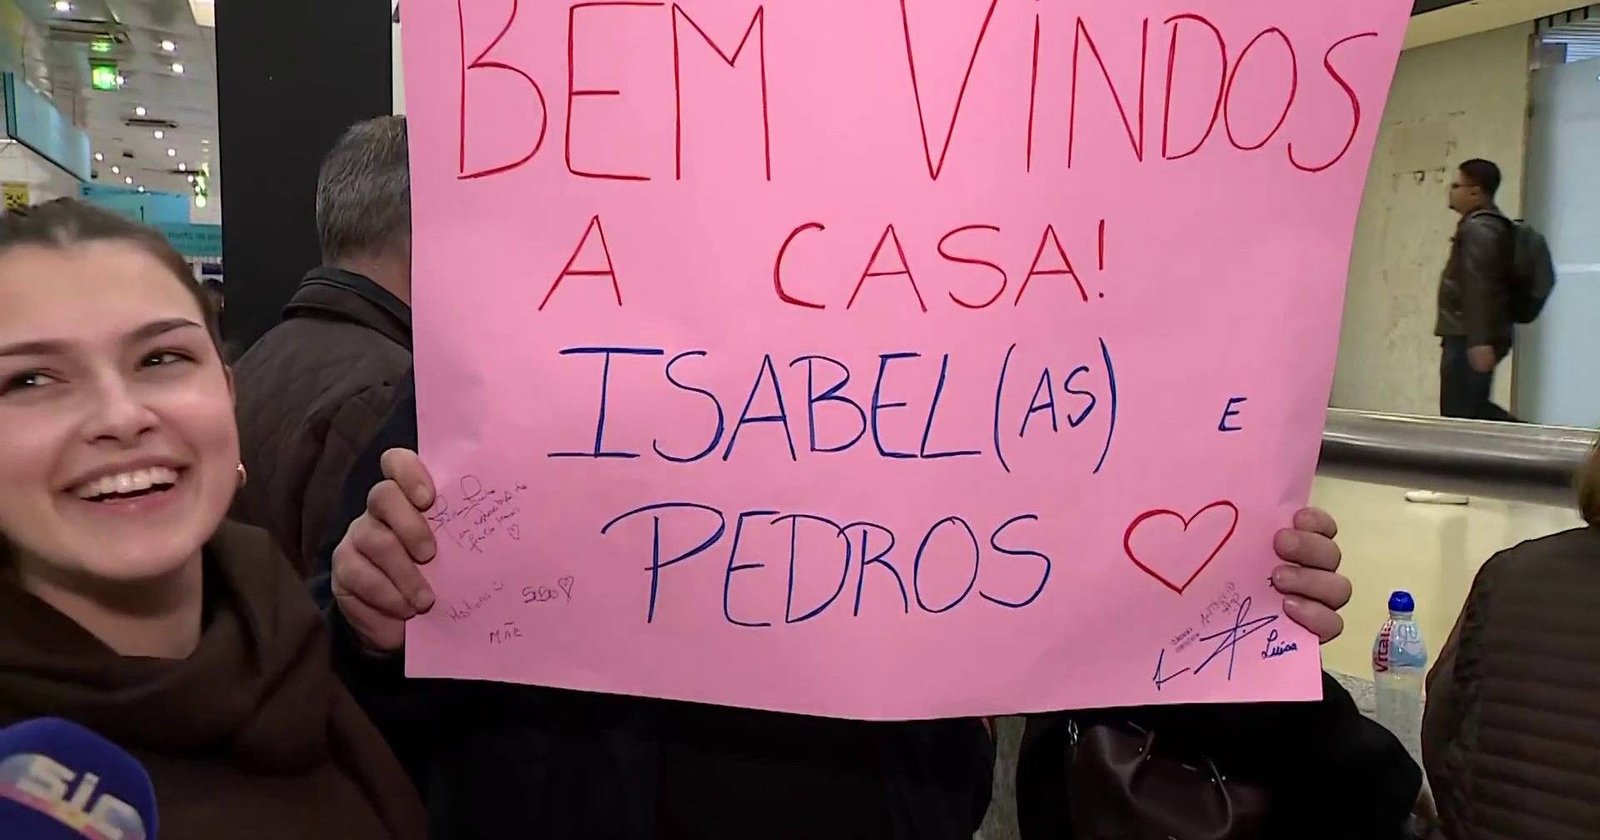 BEM VINDOS
A CASA!
ISABEL(AS) E
PEDROS
SEBO
MÃE
Luísa
Vitalis
sic